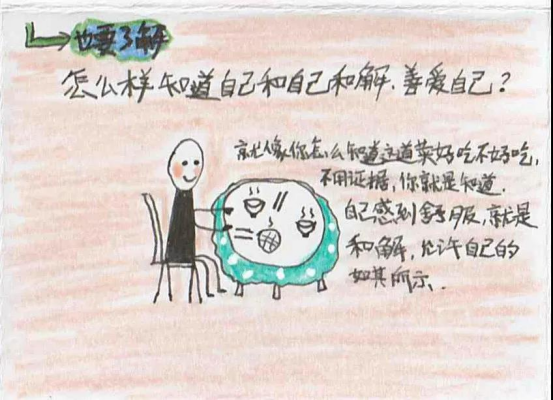 也要了解
怎么样知道自己和自己和解.善爱自己？
就像你怎么知道这道菜好吃不好吃，
不用证据，你就是知道.
自己感到舒服，就是
和解，允许自己的
如其所示.